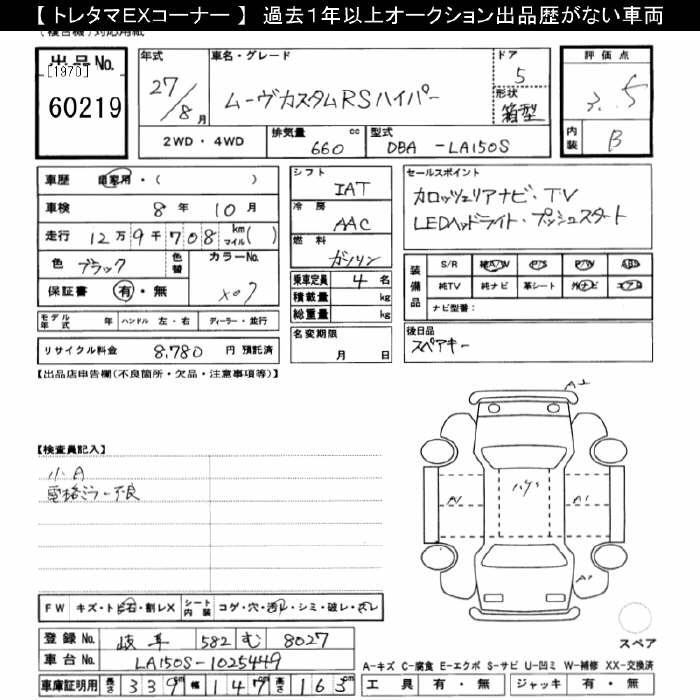 【 トレタマEXコーナー 】 過去１年以上オークション出品歴がない車両
(複合機)対応用紙
出品No.
[1970]
60219
年式
27/8月
車名・グレード
ムーヴカスタムRSハイパー
ドア
5
形状
箱型
評価点
3.5
内装
B
2WD・4WD
排気量
660 cc
型式
DBA -LA150S
車歴
自家用・( )
車検
8年 10月
走行
12万9千708 km マイル( )
色
ブラック
色替
カラーNo.
X07
保証書
有・無
モデル年式
年
ハンドル 左・右
ディーラー・並行
リサイクル料金
8,780 円 預託済
シフト
IAT
冷房
AAC
燃料
ガソリン
乗車定員 4 名
積載量 kg
総重量 kg
名変期限
月 日
セールスポイント
カロッツェリアナビ・TV
LEDヘッドライト・プッシュスタート
装備品
S/R 純A/W P/S P/W ABS
純TV 純ナビ 革シート 外ナビ エアB
ナビ型番：
後日品
スペアキー
【出品店申告欄(不良箇所・欠品・注意事項等)】
【検査員記入】
小A
電格ミラー不良
FW キズ・ト石・割レX
シート内装 コゲ・穴・汚レ・シミ・破レ・スレ
登録No.
岐阜 582 む 8027
車台No.
LA150S-1025449
車庫証明用 長さ 339cm 幅 147cm 高さ 163cm
A2
A1
A1
A1
スペア
A-キズ C-腐食 E-エクボ S-サビ U-凹ミ W-補修 XX-交換済
工具 有・無 ジャッキ 有・無